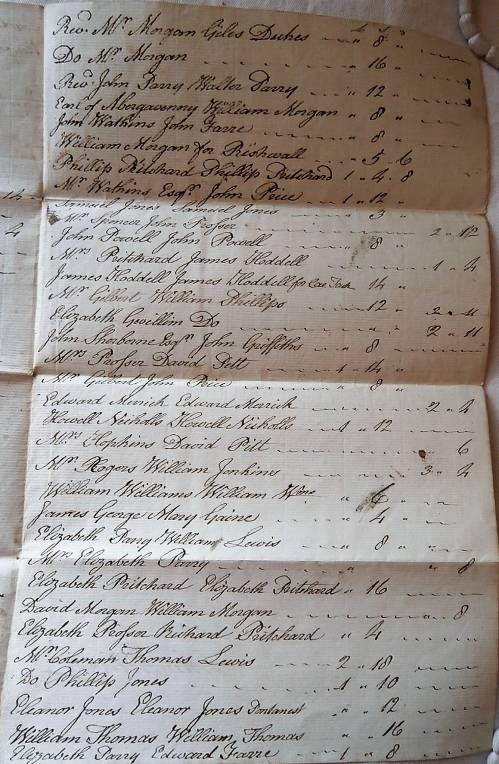 £ s d
Revd. Mr. Morgan Giles Dukes " 8 "
Do Mr. Morgan " 16 "
Revd. John Parry Walter Parry " 12 "
Earl of Abergavenny William Morgan " 8 "
John Watkins John Farre " 8 "
William Morgan for Rishwall " 5 6
Phillip Pritchard Phillip Pritchard 1 4 8
Mr. Watkins Esqr. John Price 1 12
Samuel Jones Samuel Jones " 3 "
Mr. Spencer John Prosser 2
John Powell John Powell " 8 "
Mrs. Pritchard James Hoddell 1 4
James Hoddell James Hoddell for 14 "
Mr. Gilbert William Phillips " 12 "
Elizabeth Gwillim Do 2 11
John Shorborne Esqr. John Griffiths " 8 "
Mrs. Prosser David Pitt 1 4 "
Mr. Gilbert John Price " 8 "
Edward Merrick Edward Merrick 2 4
Howell Nicholls Howell Nicholls 1 12
Mrs. Hopkins David Pitt " 6
Mr. Rogers William Jenkins 3 4
William Williams William Wms " 6 "
James George Mary Gaine " 4 "
Elizabeth Parry William Lewis " 8 "
Mrs. Elizabeth Parry " 8
Elizabeth Pritchard Elizabeth Pritchard " 16
David Morgan William Morgan " 8
Elizabeth Prosser Richard Pritchard " 4
Mr. Coleman Thomas Lewis 2 18
Do Phillip Jones 1 10
Eleanor Jones Eleanor Jones " 12
William Thomas William Thomas " 16
Elizabeth Parry Edward Farre 1 8